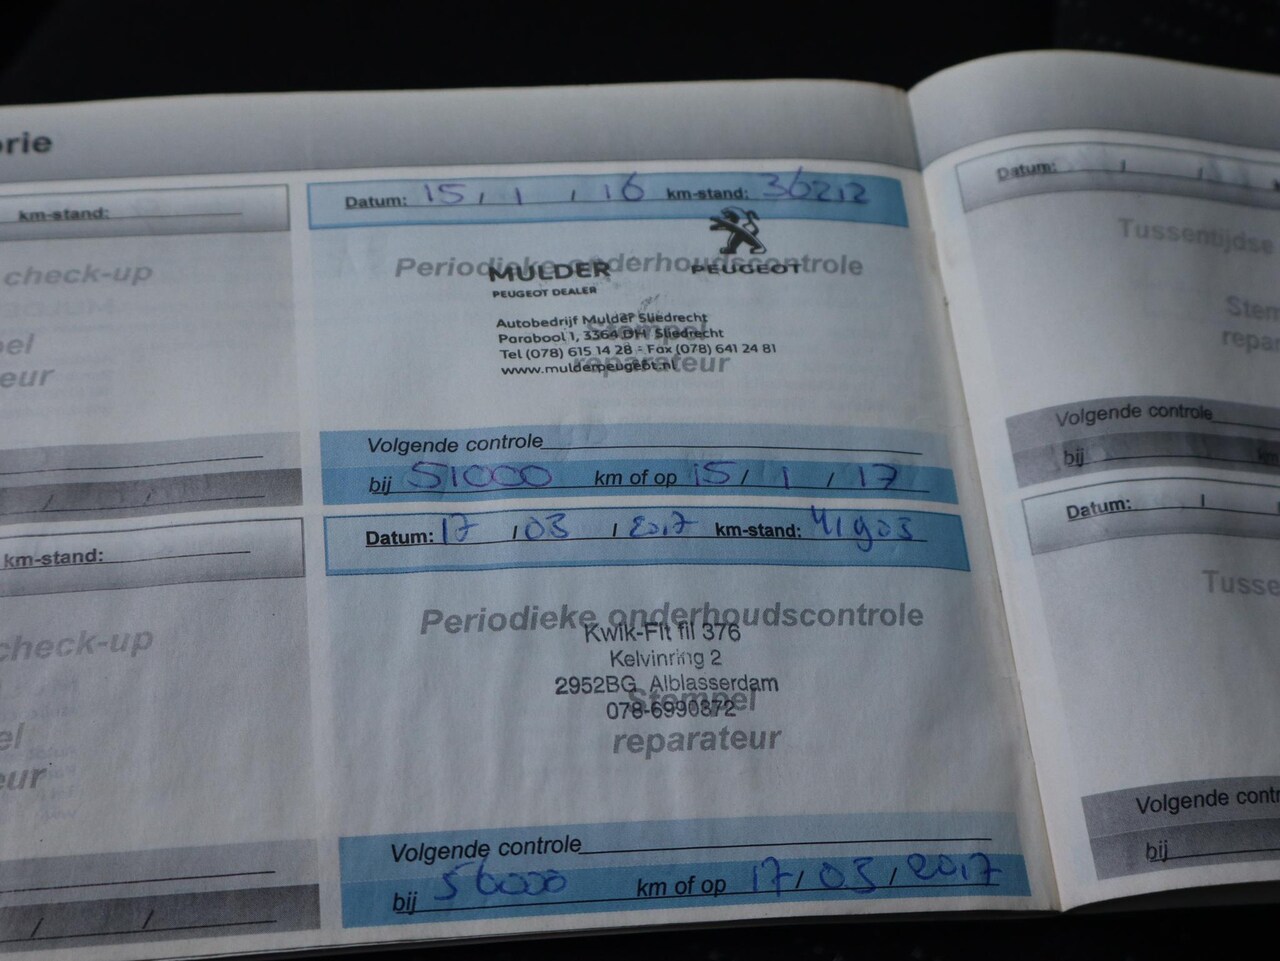 orie
km-stand:
check-up
pel
eur
/ /
km-stand:
check-up
el
eur
/ /
Datum: 15 / 1 / 16 km-stand: 36212
Periodieke onderhoudscontrole
MULDER
PEUGEOT DEALER
PEUGEOT
Autobedrijf Mulder Sliedrecht
Stempel
Parabool 1, 3364 DH Sliedrecht
Tel (078) 615 14 28 - Fax (078) 641 24 81
reparateur
www.mulderpeugeot.nl
Volgende controle
bij 51000 km of op 15 / 1 / 17
Datum: 17 / 03 / 2017 km-stand: 41903
Periodieke onderhoudscontrole
Kwik-Fit fil 376
Kelvinring 2
2952BG Alblasserdam
Stempel
078-6990372
reparateur
Volgende controle
bij 56000 km of op 17 / 03 / 2017
Datum: / /
Tussentijdse
Stem
repar
Volgende controle
bij km
Datum: /
Tusse
Volgende contr
bij